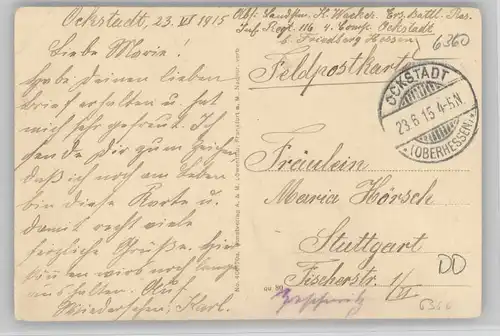 Ockstadt, 23. VI 1915
Liebe Marie!
Habe Deinen lieben
Brief erhalten u. hat
mich sehr gefreut. Ich
sende Dir zum Zeichen
daß ich noch am Leben
bin diese Karte u.
damit recht viele
herzliche Grüße. Hier
können wirs noch lange
aushalten. Auf
Wiedersehen, Karl.
Abs: Landstm. K. Wacker. Ers. Battl. Res.
Inf. Regt. 116 4. Comp. Ockstadt
b. Friedberg Hessen
6360
Feldpostkarte
OCKSTADT
23.6.15. 4-5N.
*(OBERHESSEN)*
Fräulein
Maria Hörsch
Stuttgart
Fischerstr. 1/II
DD
6360